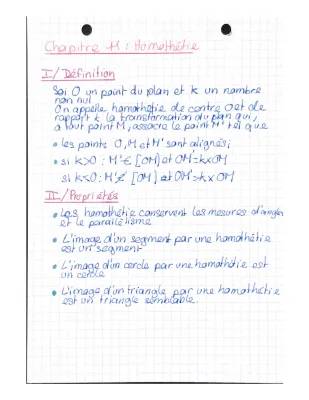 Chapitre 11 : Homothétie
I/ Définition
Soi O un point du plan et k un nombre
non nul.
On appelle homothétie de centre O et de
rapport k la transformation du plan qui,
a tout point M, associe le point M' tel que
• les points O, M et M' sont alignés ;
• si k>0 : M' ∈ [OM) et OM' = k×OM
si k<0 : M' ∉ [OM) et OM' = -k×OM
II/ Propriétés
• Les homothétie conservent les mesures d'angles
et le parallélisme
• L'image d'un segment par une homothétie
est un segment
• L'image d'un cercle par une homothétie est
un cercle
• L'image d'un triangle par une homothétie
est un triangle semblable.